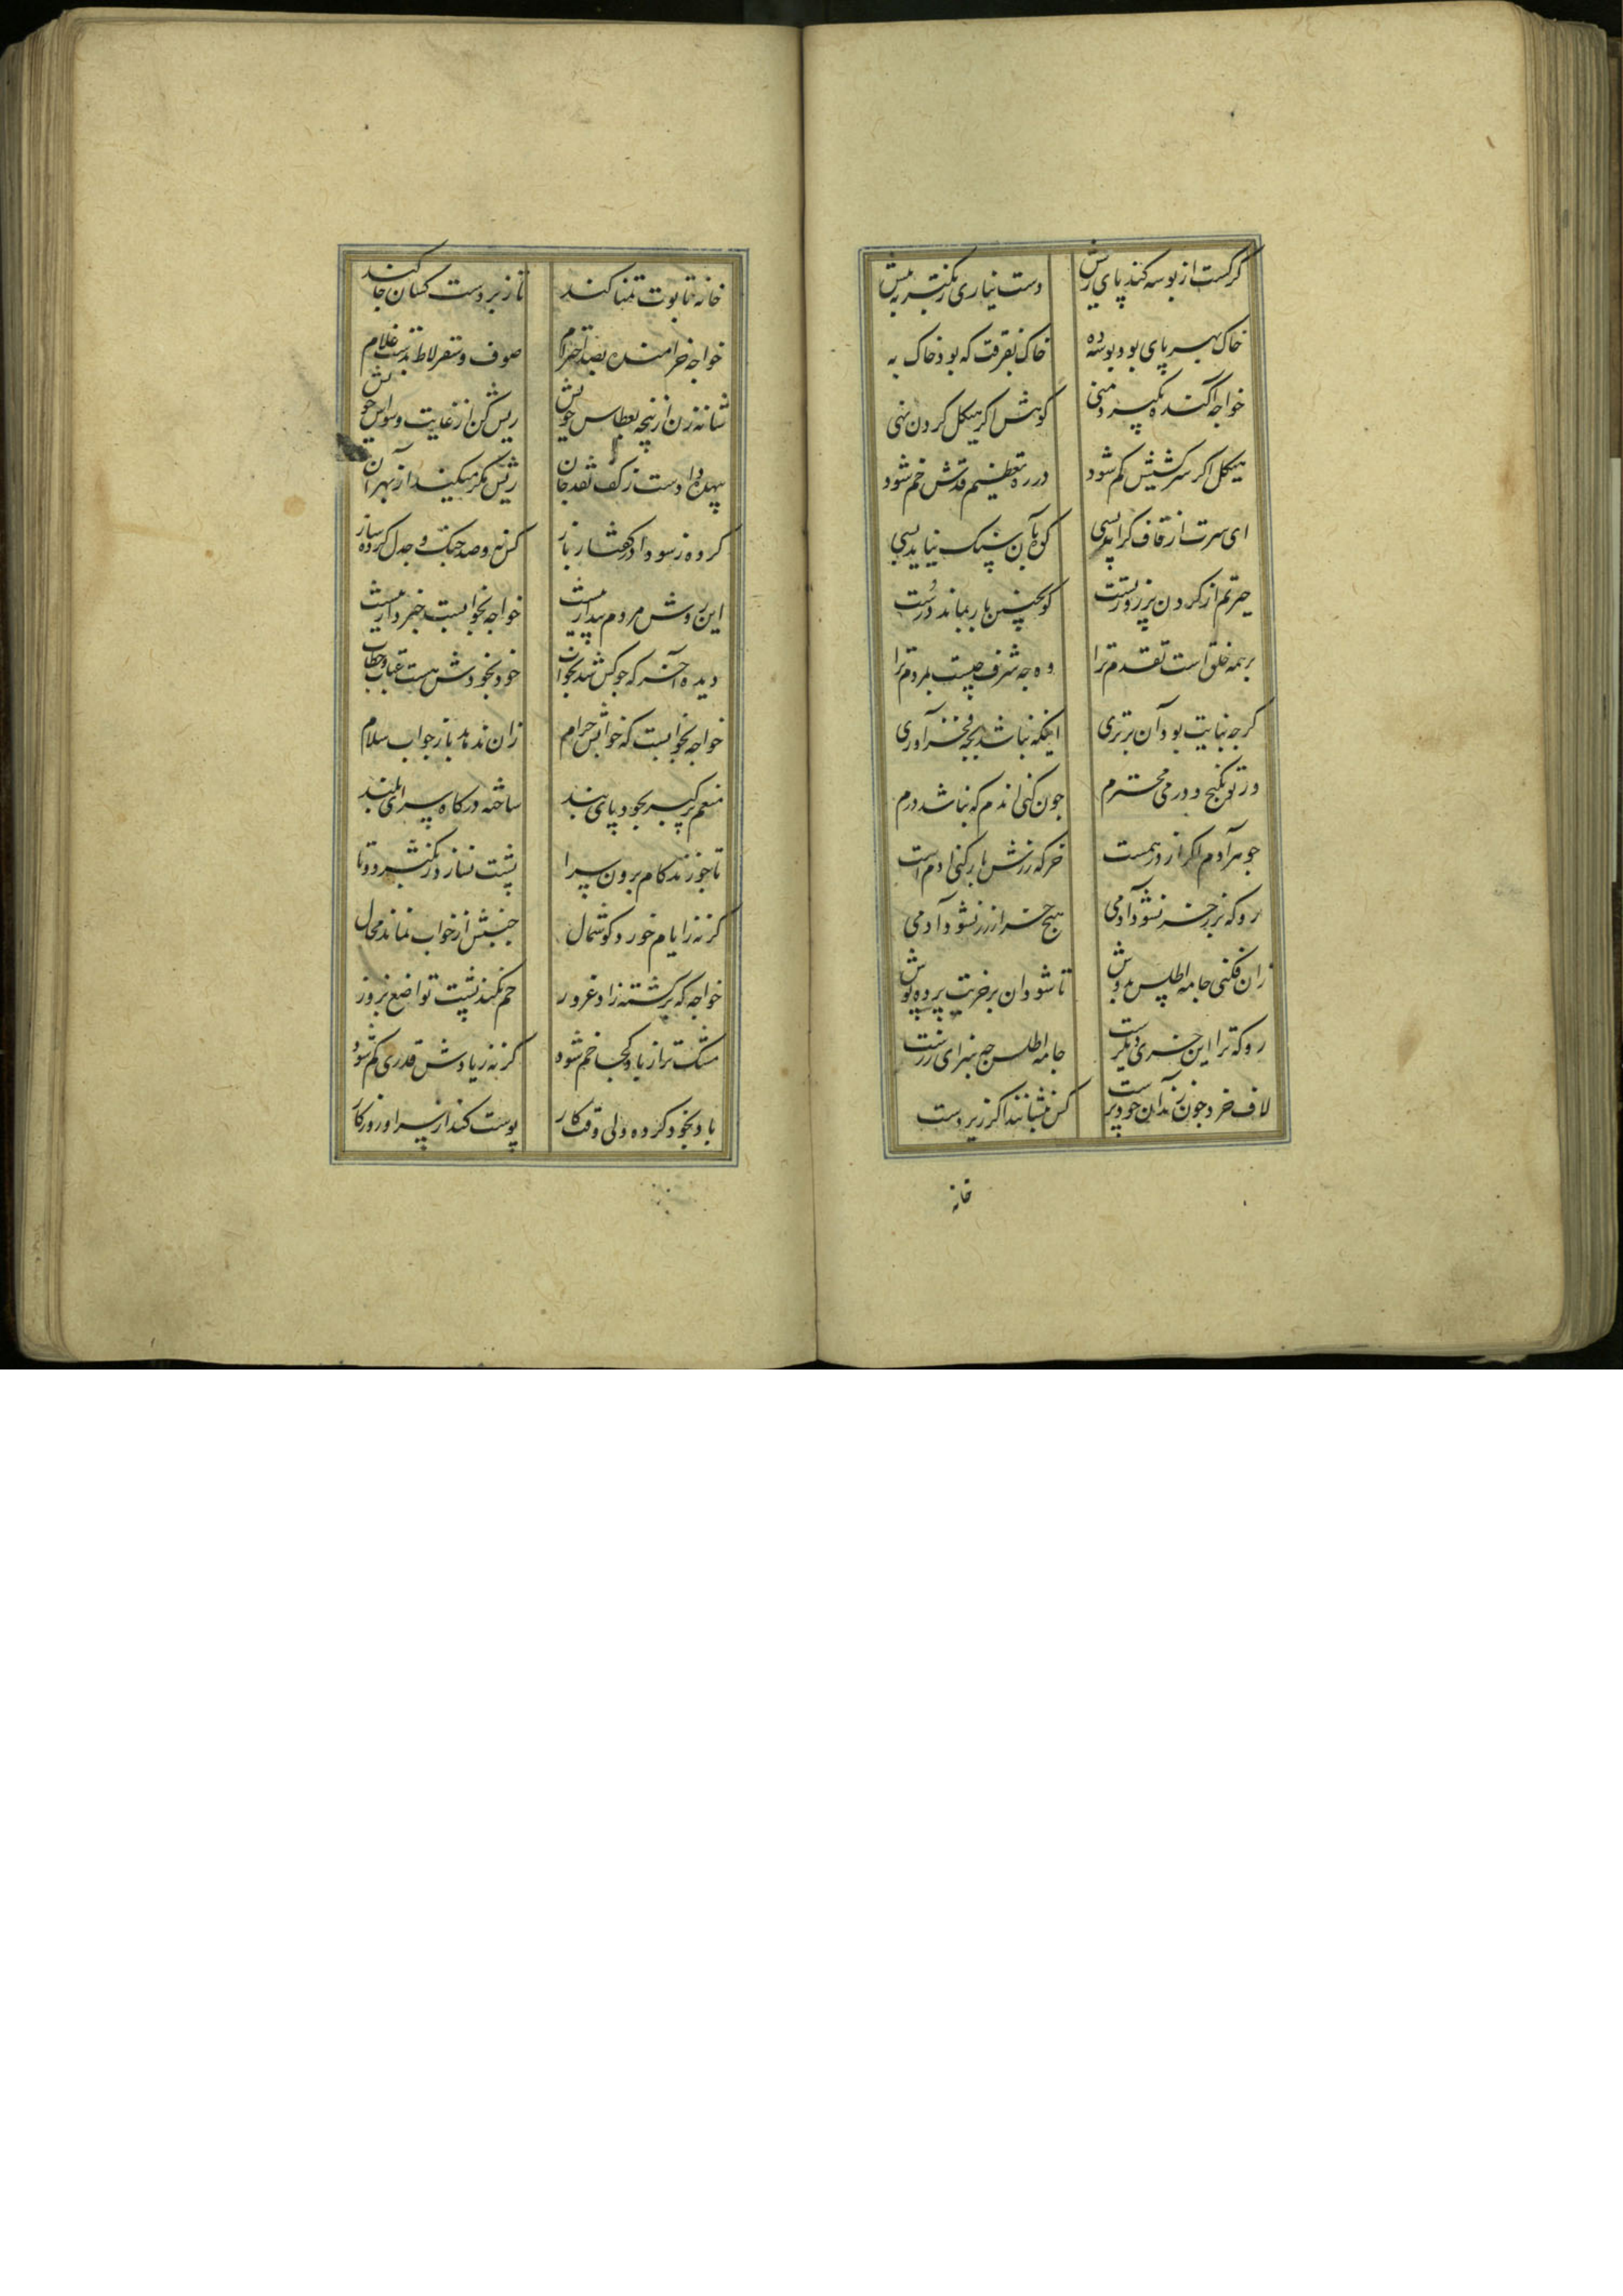 گر کست از بوسه کند پای ریش
دست نیاری ز تکبر به پیش
خاک بهر پای بود بوسه ده
خاک بفرقت که بود خاک به
خواجه آکنده بکبر و منی
کوهش اگر هیکل گردن نهی
هیکل اگر سرکشیش کم شود
در ره تعظیم قدش خم شود
ای سرت از قاف گران بسی
کوه بآن سنک نیاید بسی
حیرتم از گردن پر زور تست
کو بچنین بار بماند درست
بر همه خلق است تقدم ترا
وه چه شرف چیست بمردم ترا
گرچه نباتیت بود آن برتری
اینکه نباشد بچه فخر آوری
ور تو بگنج و درمی محترم
چون کنی اندم که نباشد درم
جوهر آدم اگر از درهمست
خر که زرش بار کنی ادم است
رو که بزر خر نشود آدمی
هیچ خر از زر نشود آدمی
زان فکنی جامه اطلس بدوش
تا شود ان بر خریت پرده پوش
رو که ترا این خری دیگرست
جامه اطلس چه سزای زرست
لاف خرد چون زند آن خودپرست
کش ننشانند اگر زبردست
خانه
خانه تابوت تمنا کند
تا زبردست کسان جا کند
خواجه خرامنده بصد احترام
صوف و سقرلاط بدست غلام
شانه زن از پنجه بعطاس خویش
ریش کن از غایت وسواس خویش
بیهده داد است ز کف نقد جان
ریش مگر میکند از بهر آن
کرده ز سودا در گفتار باز
کس نه و صد جنک و جدل کرده ساز
این روش مردم بیدار نیست
خواجه بخوابست خبردار نیست
دیده آخر که چو کس شد بخواب
خود بخودش هست عتاب و خطاب
خواجه بخوابست که خوابش حرام
زان ندهد باز جواب سلام
منعم پر کبر بخود پای بند
ساخته درکاه سرای بلند
تا چو زند کام برون سرا
پشت نسازد ز تکبر دو تا
گر نه ز ایام خورد گوشمال
جنبش از خواب نماند محال
خواجه که پر گشته ز باد غرور
خم نکند پشت تواضع بزور
مشک تر از باد کجا خم شود
گر نه ز بادش قدری کم شود
باد بخود کرده ولی وقت کار
پوست کند از سر او روزگار